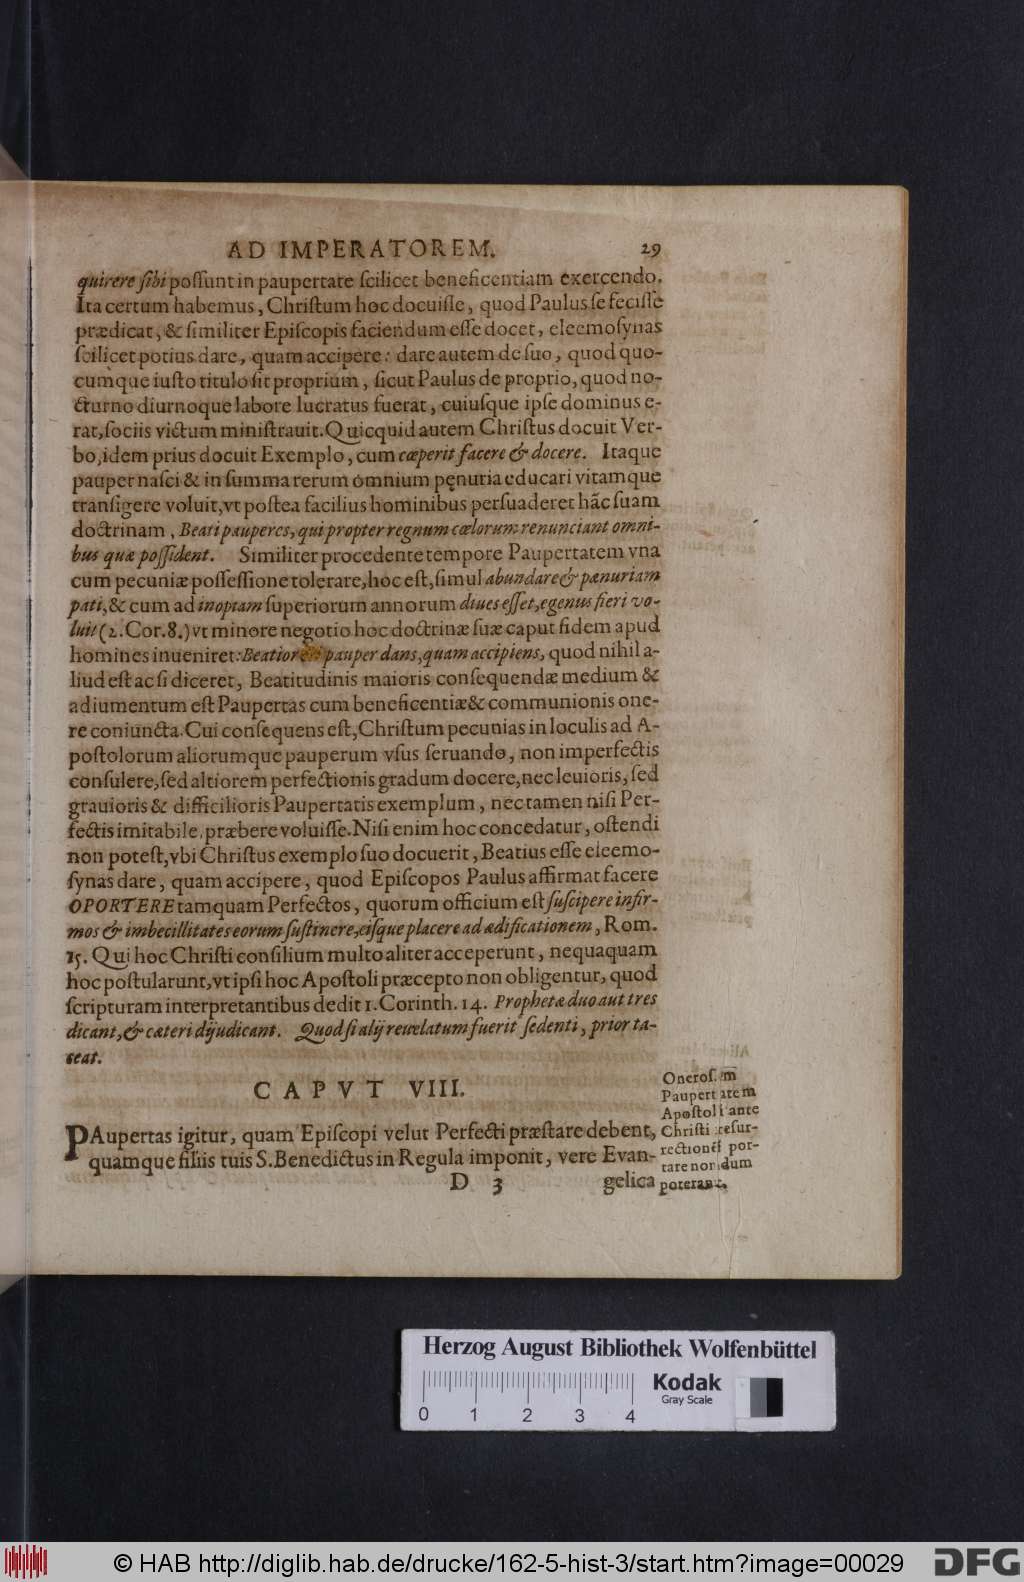 AD IMPERATOREM. 29
quirere sibi possunt in paupertate scilicet beneficentiam exercendo.
Ita certum habemus, Christum hoc docuisse, quod Paulus se fecisse
prædicat, & similiter Episcopis faciendum esse docet, eleemosynas
scilicet potius dare, quam accipere: dare autem de suo, quod quo-
cumque iusto titulo sit proprium, sicut Paulus de proprio, quod no-
cturno diurnoque labore lucratus fuerat, cuiusque ipse dominus e-
rat, sociis victum ministrauit. Quicquid autem Christus docuit Ver-
bo, idem prius docuit Exemplo, cum cœperit facere & docere. Itaque
pauper nasci & in summa rerum omnium pęnuria educari vitamque
transigere voluit, vt postea facilius hominibus persuaderet hāc suam
doctrinam, Beati pauperes, qui propter regnum cœlorum renunciant omni-
bus quæ possident. Similiter procedente tempore Paupertatem vna
cum pecuniæ possessione tolerare, hoc est, simul abundare & pænuriam
pati, & cum ad inopiam superiorum annorum diues esset, egenus fieri vo-
luit (2. Cor. 8.) vt minore negotio hoc doctrinæ suæ caput fidem apud
homines inueniret: Beatior est pauper dans, quam accipiens, quod nihil a-
liud est ac si diceret, Beatitudinis maioris consequendæ medium &
adiumentum est Paupertas cum beneficentiæ & communionis one-
re coniuncta. Cui consequens est, Christum pecunias in loculis ad A-
postolorum aliorumque pauperum vsus seruando, non imperfectis
consulere, sed altiorem perfectionis gradum docere, nec leuioris, sed
grauioris & difficilioris Paupertatis exemplum, nec tamen nisi Per-
fectis imitabile, præbere voluisse. Nisi enim hoc concedatur, ostendi
non potest, vbi Christus exemplo suo docuerit, Beatius esse eleemo-
synas dare, quam accipere, quod Episcopos Paulus affirmat facere
OPORTERE tamquam Perfectos, quorum officium est suscipere infir-
mos & imbecillitates eorum sustinere, eisque placere ad ædificationem, Rom.
15. Qui hoc Christi consilium multo aliter acceperunt, nequaquam
hoc postularunt, vt ipsi hoc Apostoli præcepto non obligentur, quod
scripturam interpretantibus dedit 1. Corinth. 14. Prophetæ duo aut tres
dicant, & cæteri dijudicant. Quod si alij reuelatum fuerit sedenti, prior ta-
ceat.
CAPVT VIII.
PAupertas igitur, quam Episcopi velut Perfecti præstare debent,
quamque filiis tuis S. Benedictus in Regula imponit, vere Evan-
D 3 gelica
Onerosam
Paupertatem
Apostoli ante
Christi resur-
rectionem por-
tare nondum
poterant.
Herzog August Bibliothek Wolfenbüttel
Kodak
Gray Scale
0 1 2 3 4
© HAB http://diglib.hab.de/drucke/162-5-hist-3/start.htm?image=00029
DFG